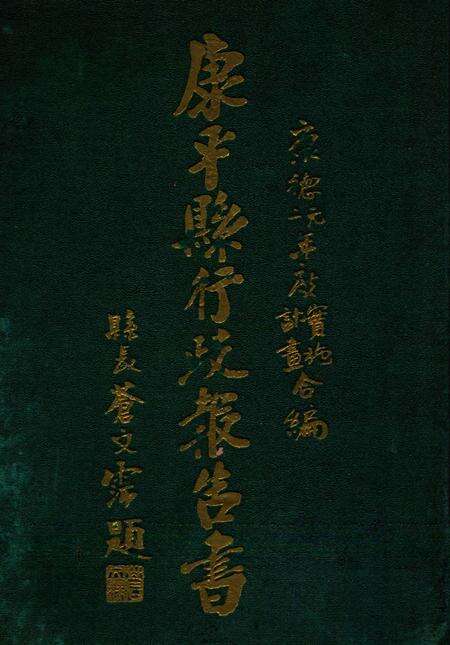 康德元年度實施計畫合編
康平縣行政報告書
縣長蒼文霑題